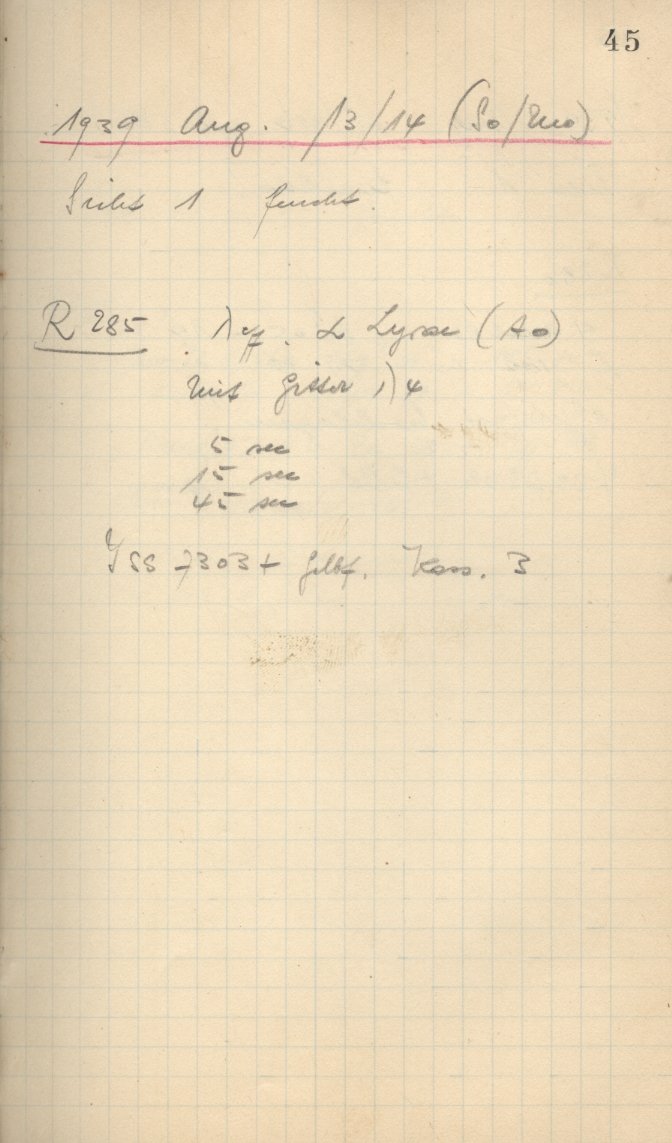 45
1939 Aug. 13/14 (So/Mo)
Sicht 1 feucht.
R 285 λeff. α Lyrae (A0)
mit Gitter 1) 4
5 sec
15 sec
45 sec
7303 + Gelbf. Kass. 3